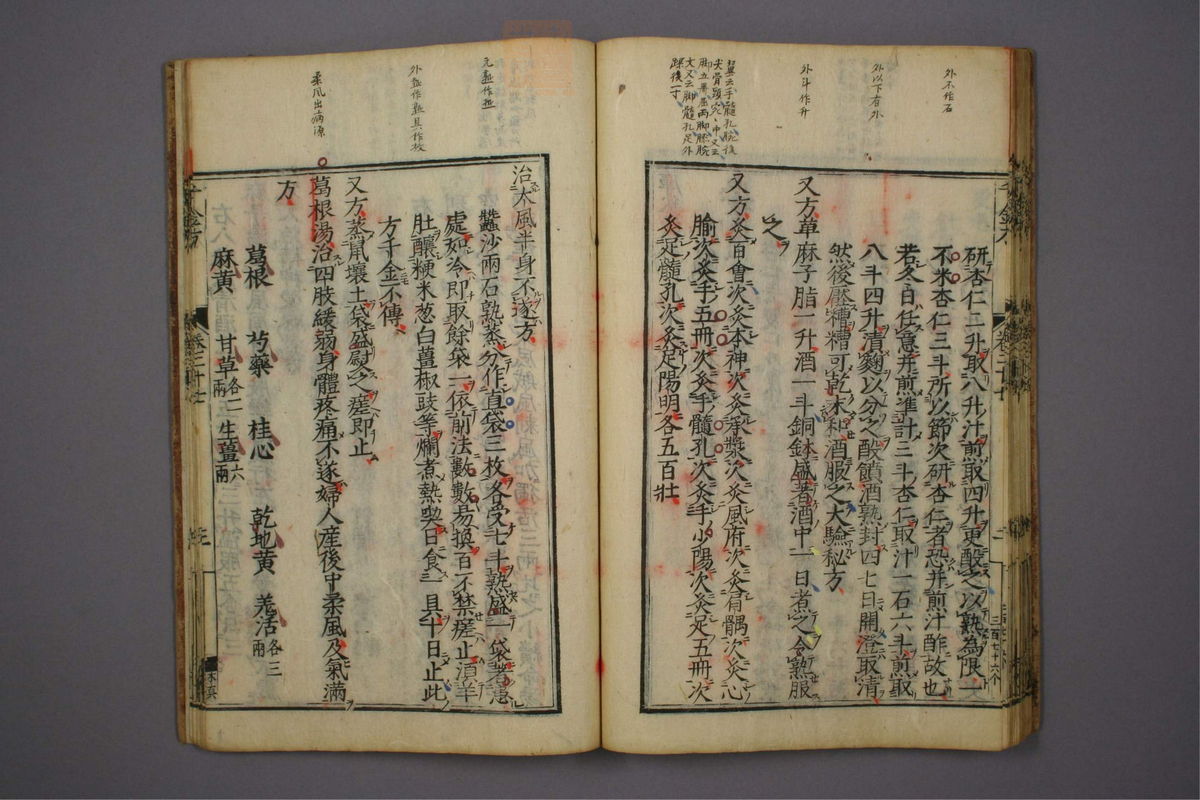 外不作石
外以下有外
外斗作升
翼云手髓孔腕後
尖骨頭穴
脚
文又云脚髓孔足外
踝後一寸
研杏仁二升取八升汁煎取四升更酘之以熟為限一
不米杏仁三斗所以節次研杏仁者恐并煎汁酢故也
若冬日任意并煎準計三斗杏仁取汁一石六斗煎取
八斗四升漬麴以分之酘饋酒熟封四七日開澄取清
然後壓糟糟可乾末和酒服之大驗秘方
又方萆麻子脂一升酒一斗銅鉢盛著酒中一日煮之令熟服
之
又方灸百會次灸本神次灸承漿次灸風府次灸肩髃次灸心
腧次灸手五冊次灸手髓孔次灸手少陽次灸足五冊次
灸足髓孔次灸足陽明各五百壯
治大風半身不遂方
蠶沙兩石熟蒸分作直袋三枚各受七斗熟盛一袋著患
處如冷即取餘袋一依前法數數易換百不禁瘥止須羊
肚釀粳米葱白薑椒豉等爛煮熱喫日食一具十日止此
方千金不傳
又方蒸鼠壤土袋盛熨之瘥即止
葛根湯治四肢緩弱身體疼痛不遂婦人産後中柔風及氣滿
方
葛根　芍藥　桂心　乾地黄　羌活各三兩
麻黄　甘草各二兩　生薑六兩
柔風出病源
千金方
卷三十七